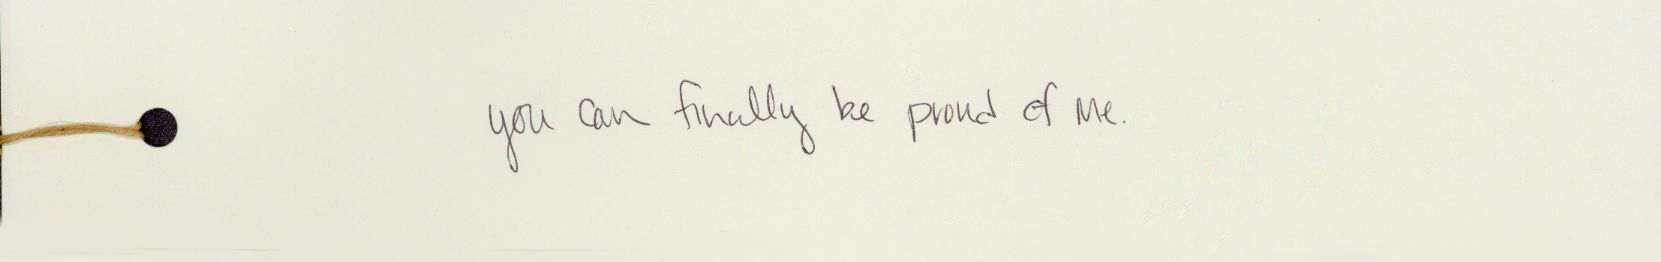 you can finally be proud of me.